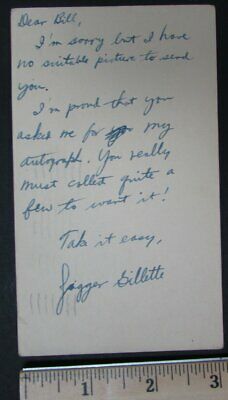 Dear Bill,
I'm sorry but I have
no suitable picture to send
you.
I'm proud that you
asked me for my
autograph. You really
must collect quite a
few to want it!
Take it easy,
Jogger Gillette
1 2 3